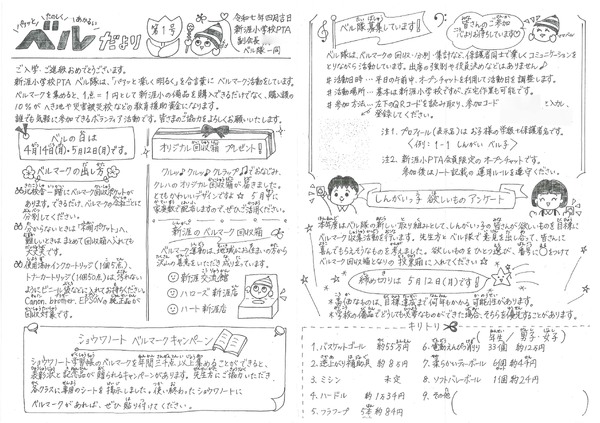 パッと たのしく あかるい
ベルだより
第1号
令和七年四月吉日
新涯小学校PTA
副会長
ベル隊一同
ご入学・ご進級おめでとうございます。
新涯小学校PTA ベル隊では、「パッと楽しく明るく」を合言葉に ベルマーク活動をしています。
ベルマークを集めると、1点=1円として新涯小の備品を購入できるだけでなく、購入額の
10%が へき地や災害被災校などの教育援助資金になります。
誰でも気軽に参加できるボランティア活動です。皆さまのご協力をよろしくお願いいたします。
ベルの日は
4月14日(月)・5月12日(月)です。
ベルマークの出し方
登校省一緒にベルマーク回収ポケットが
あります。できるだけ、ベルマークの会社ごとに
分別してください。
たからないときは「学期ポケット」へ、
難しいときはまとめて回収箱へ入れても
大丈夫です。
使用済みインクカートリッジ(1個5点)、
トナーカートリッジ(1個50点)は、汚れない
ようにビニール袋などに入れてお持ちください。
Canon、brother、EPSONの純正品が
回収対象です。
オリジナル回収箱 プレゼント!
クルッ♪クルッ♪クラップ♪でおなじみ、
クレハのオリジナル回収箱が届きました。
とてもかわいいデザインですよ☆ 5月中に
家庭数で配布しますので、ぜひご活用ください。
新涯のベルマーク回収箱
ベルマーク運動は、地域にお住まいの方から
沢山の善意をいただき成り立っています。
新涯交流館
ハローズ 新涯店
ハート 新涯店
ショウワノート ベルマークキャンペーン
ショウワノート学習帳のベルマークを年間三千点以上集めることができると、
表彰状と記念品が贈られるキャンペーンがあります。先生方にご協力いただき
各クラスに専用のシートを掲示しました。使い終わったショウワノートに
ベルマークがあれば、ぜひ貼り付けてください。
ベル隊募集しています!
皆さんのご参加
心よりお待ちしています♡
ベル隊は、ベルマークの回収・分別・集計など、保護者同士で楽しくコミュニケーションを
とりながら活動しています。出席の強制や役員決めなどはありません。
# 活動日時…平日の午前中、オープンチャットを利用して活動日を調整します。
# 活動場所…基本は新涯小学校ですが、在宅作業も可能です。
# 参加方法…左下のQRコードを読み取り、参加コード
と入力し、
登録してください。
注1. プロフィール(表示名)はお子様の学級+保護者名です。
(例:1-1 しんがい ベル子)
注2. 新涯小PTA会員限定のオープンチャットです。
参加後はノート記載の運用ルールを守ってください。
しんがいっ子 欲しいもの アンケート
本年度はベル隊の新しい取り組みとして、しんがいっ子の皆さんが欲しい物を目標に
ベルマーク収集活動を行います。先生方とベル隊で意見を出し合って、皆さんに
喜んでもらえそうなものを考えました。欲しいものをひとつ選び、番号に○をつけて
ベルマーク回収箱となりの投票箱に入れてください☆
締め切りは 5月12日(月)です!
*高価なものは、目標達成まで何年もかかる可能性があります。
*学校の備品でどうしても必要なものができた場合、そちらを優先することがあります。
キリトリ
( 年生 / 男子・女子 )
1. バスケットゴール 約55万円
2. 逆上がり補助具 約8万円
3. ミシン 未定
4. ハードル 約1834円
5. フラフープ 5本 約84円
6. 電動えんぴつ削り 33個 約12万円
7. 柔らかいボール 6個 約49千円
8. ソフトバレーボール 11個 約24千円
9. その他( )